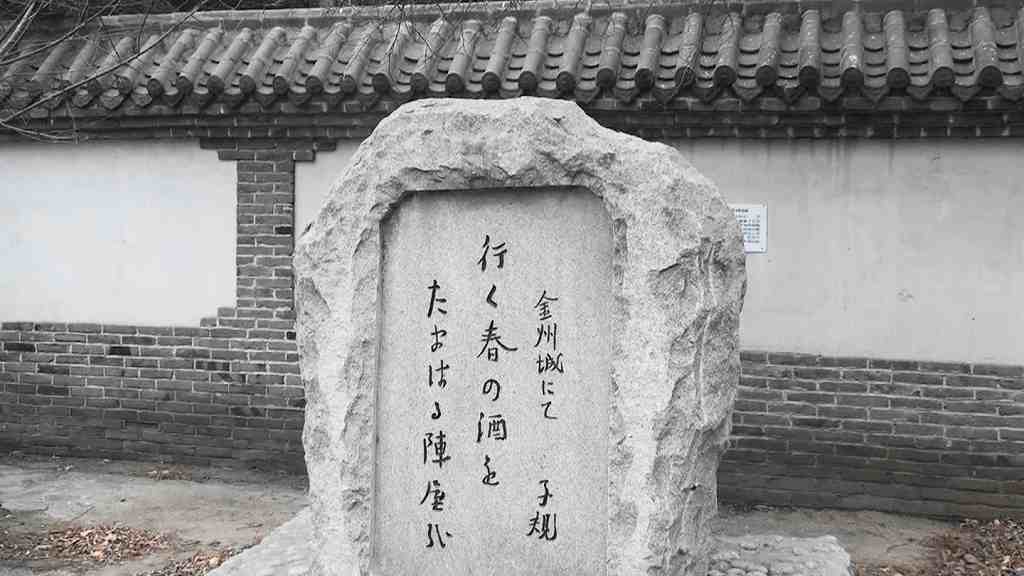 金州城にて 子規
行く春の酒を
たまはる陣屋哉